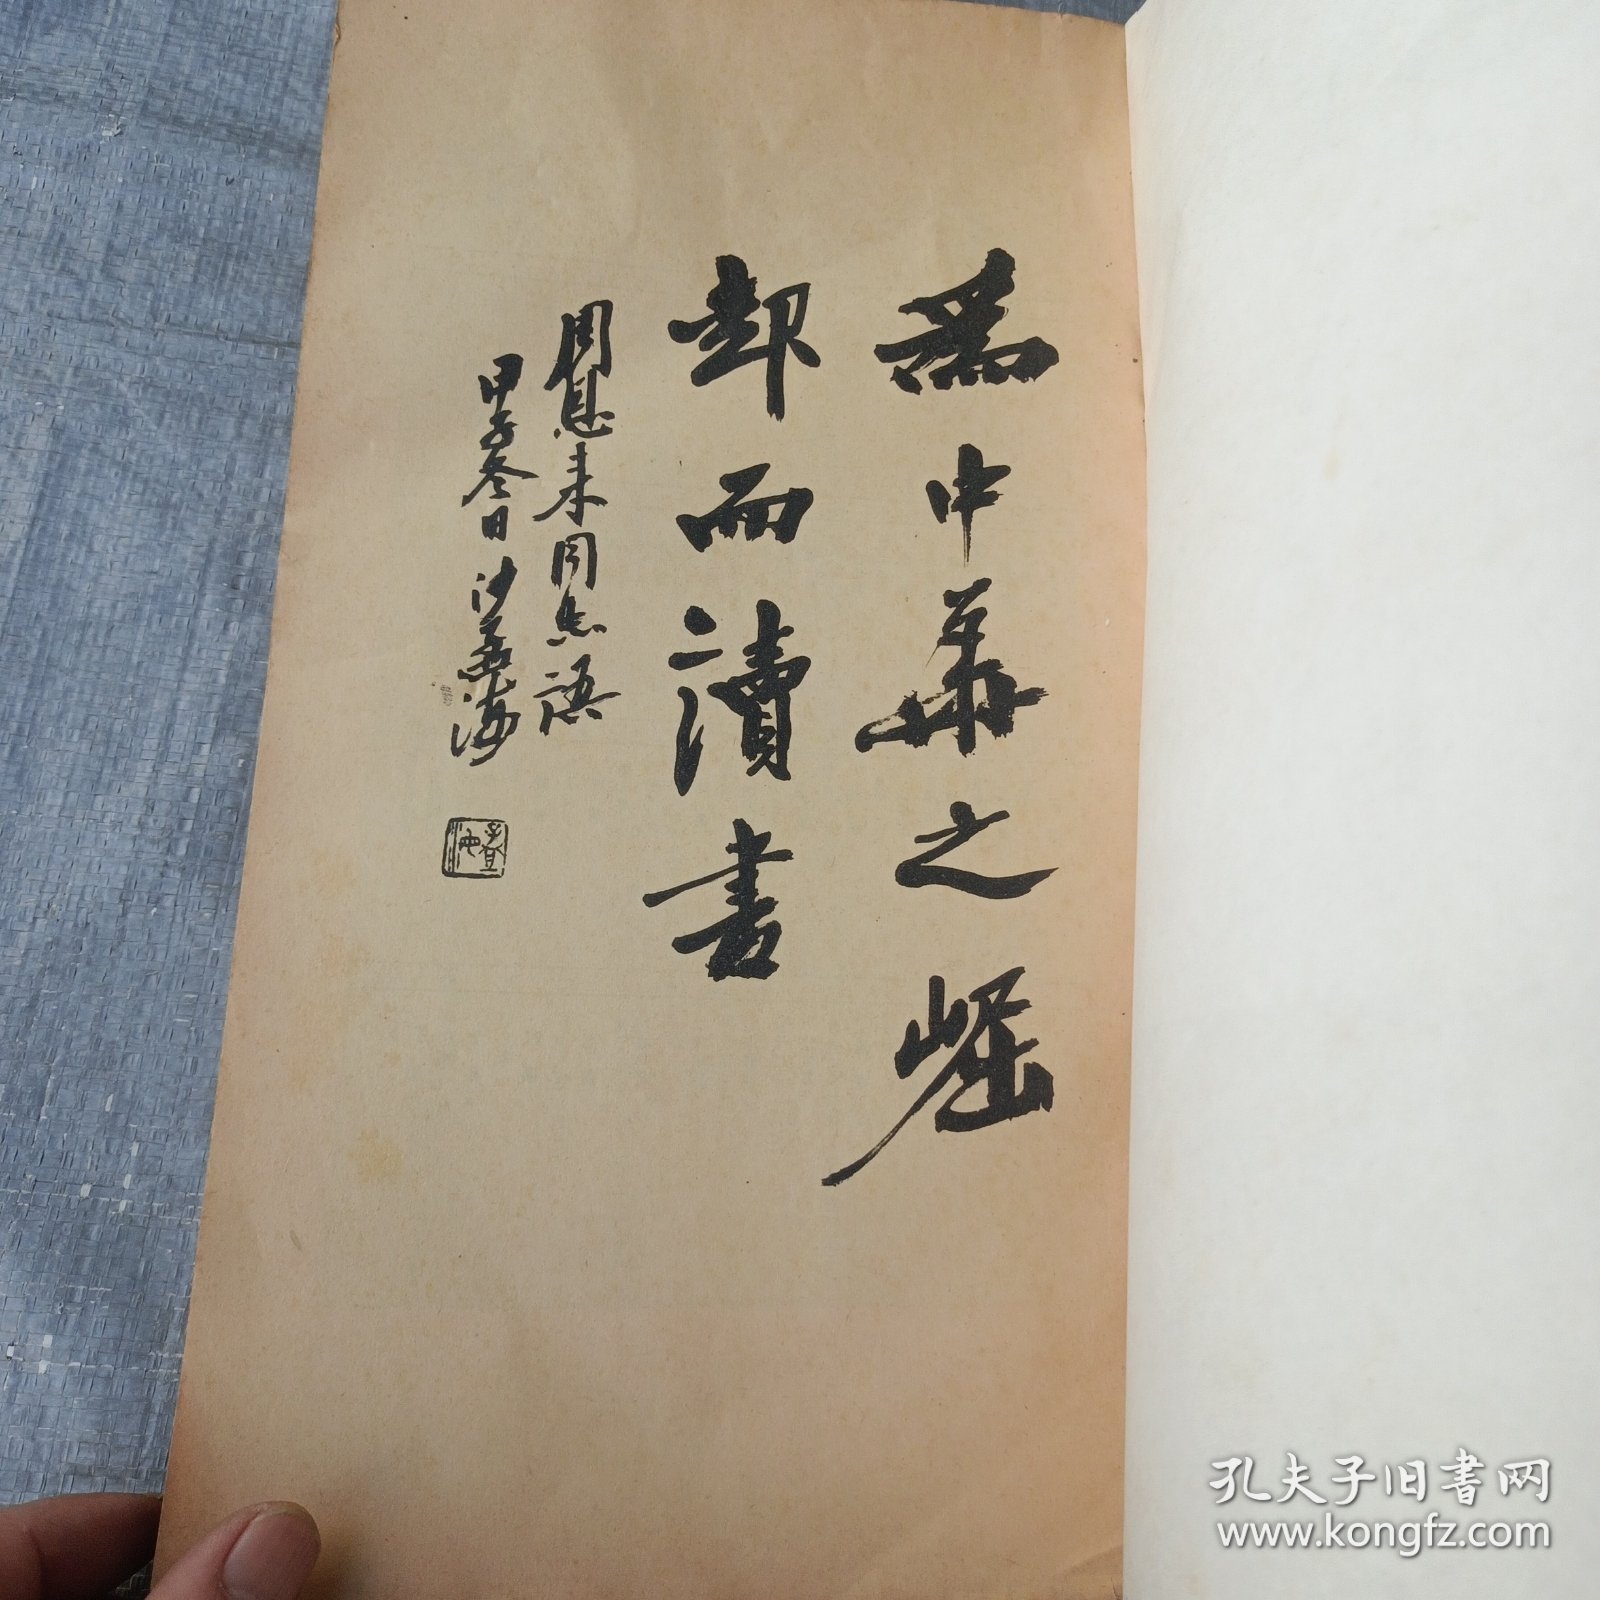 為中華之崛
起而讀書
周恩来同志語
甲子冬日沙孟海
孔夫子旧书网
www.kongfz.com